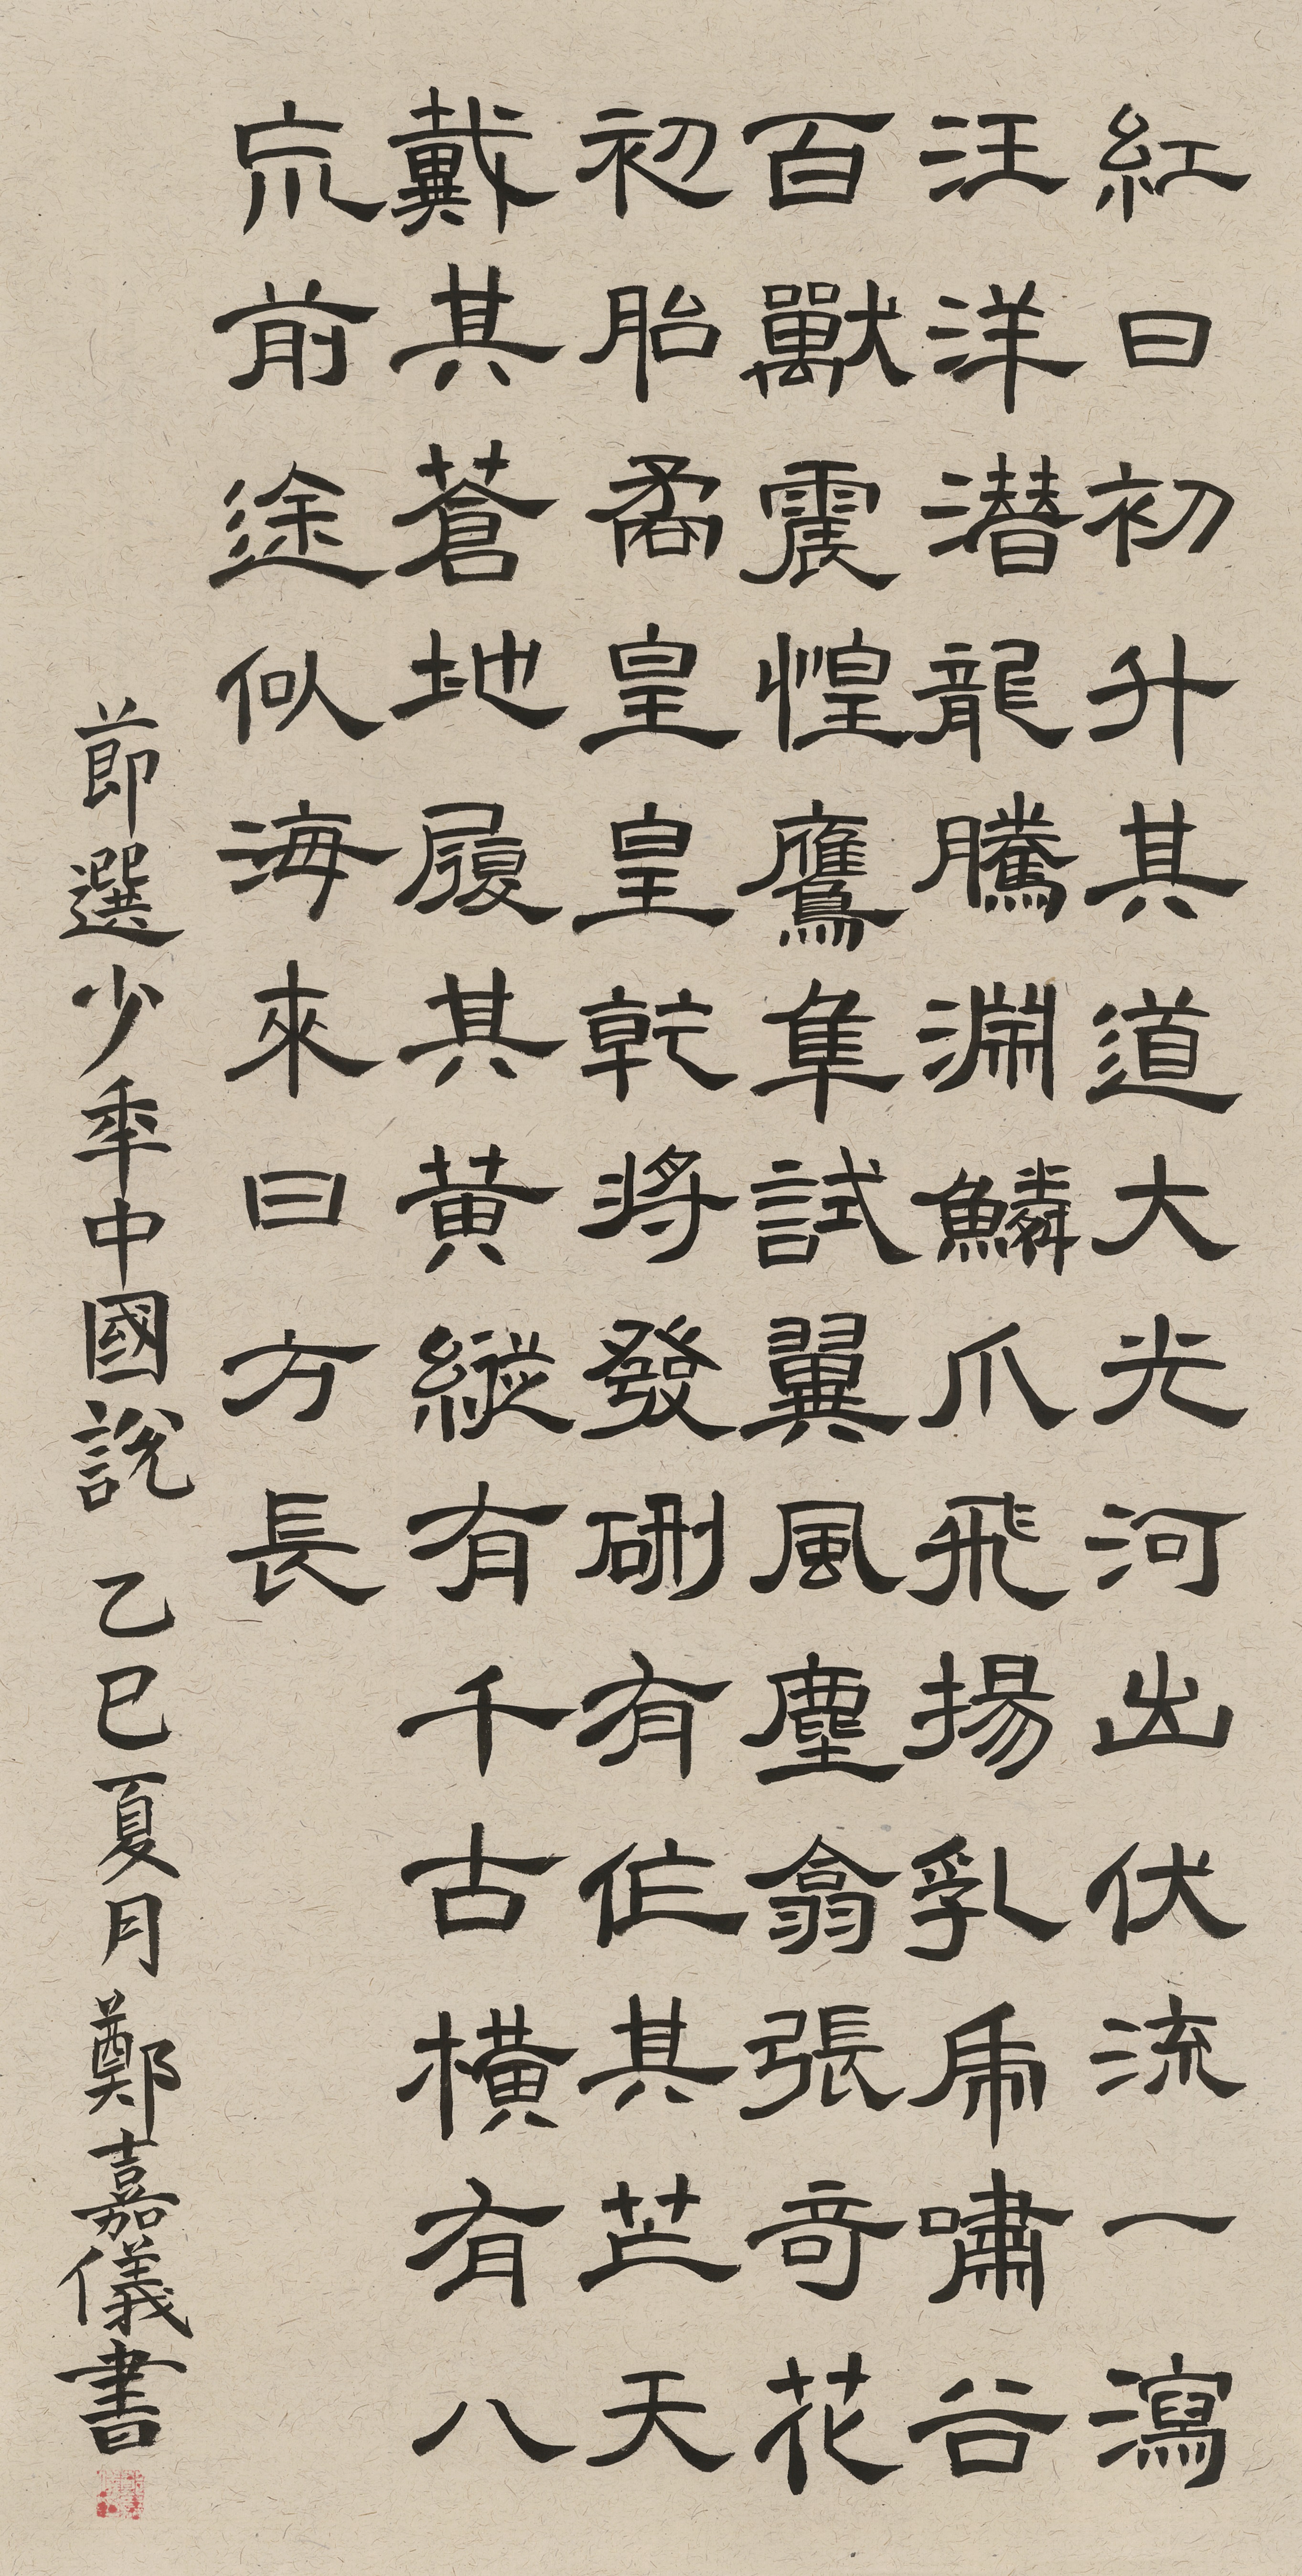 紅日初升其道大光河出伏流一瀉
汪洋潜龍騰淵鱗爪飛揚乳虎嘯谷
百獸震惶鷹隼試翼風塵翕張奇花
初胎矞皇皇乾將發硎有作其芒天
戴其蒼地履其黃縱有千古橫有八
巟前途似海來日方長
節選少年中國說 乙巳夏月鄭嘉儀書